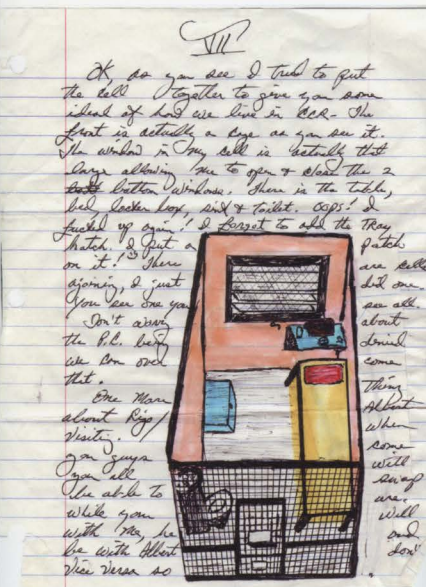 VII
OK, as you see I tried to put
the cell together to give you some
ideal of how we live in CCR- The
front is actually a cage as you see it.
The window in my cell is actually that
large allowing me to open & close the 2
bottom windows. There is the table,
bed, locker box, sink & toilet. Oops! I
fucked up again! I forgot to add the tray
hatch. I put a patch
on it! There are cells
ajoining, I just did one.
You see one you see all.
Don't worry about
the P.C. being denied
we can over come
that.
One more thing
about Rigo/ Albert
Visiting. When
you guys come
you all will
be able to swap
while you are.
with me he will
be with Albert and
Vice Versa so don't